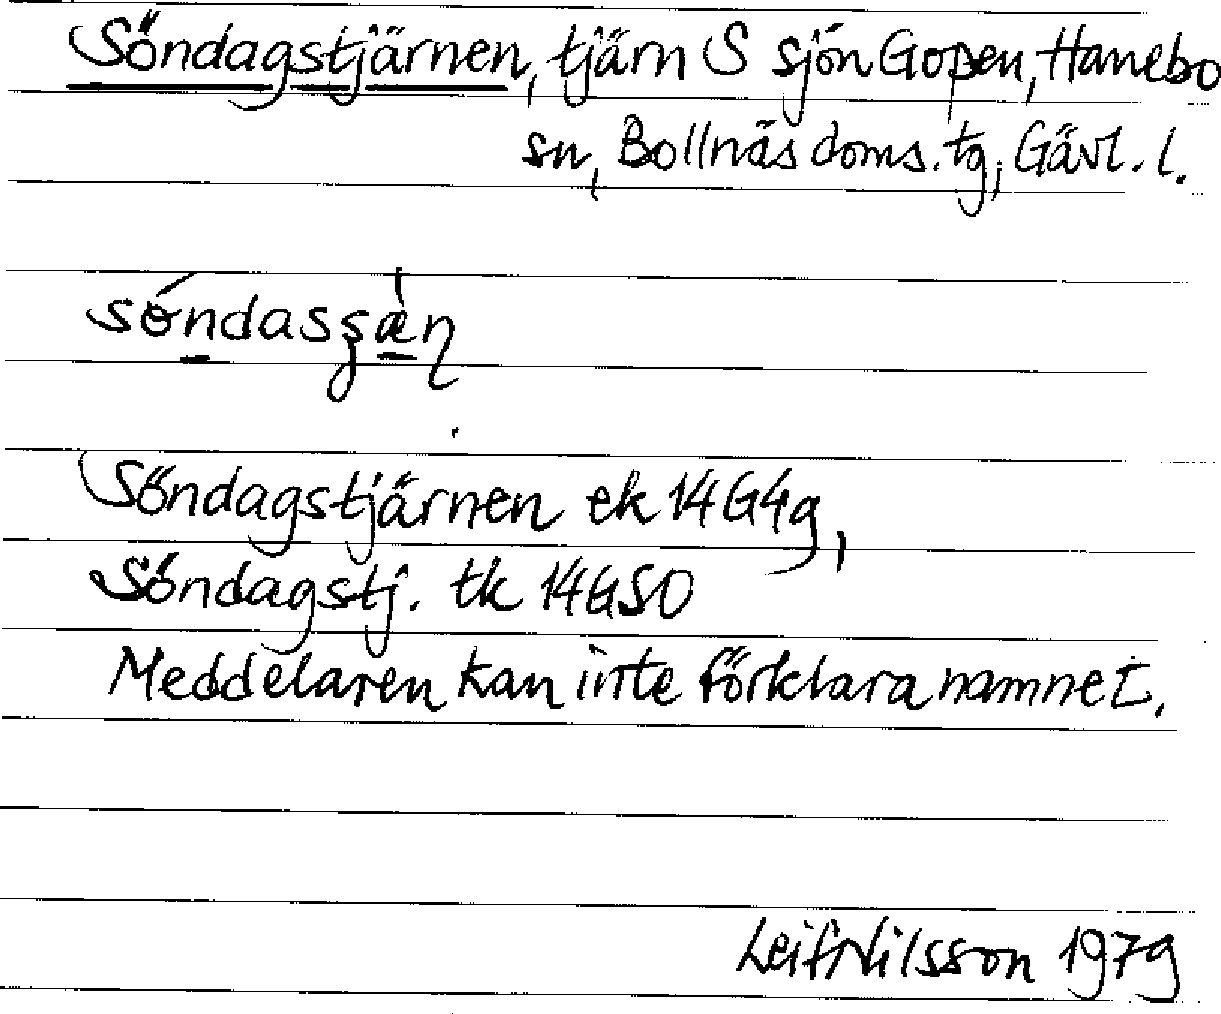 Söndagstjärnen, tjärn S sjön Gopen, Hanebo
sn, Bollnäs doms. tg, Gävl. l.
Söndagstjärnen ek 14G4g,
Söndagstj. tk 14GSO
Meddelaren kan inte förklara namnet.
Leif Nilsson 1979